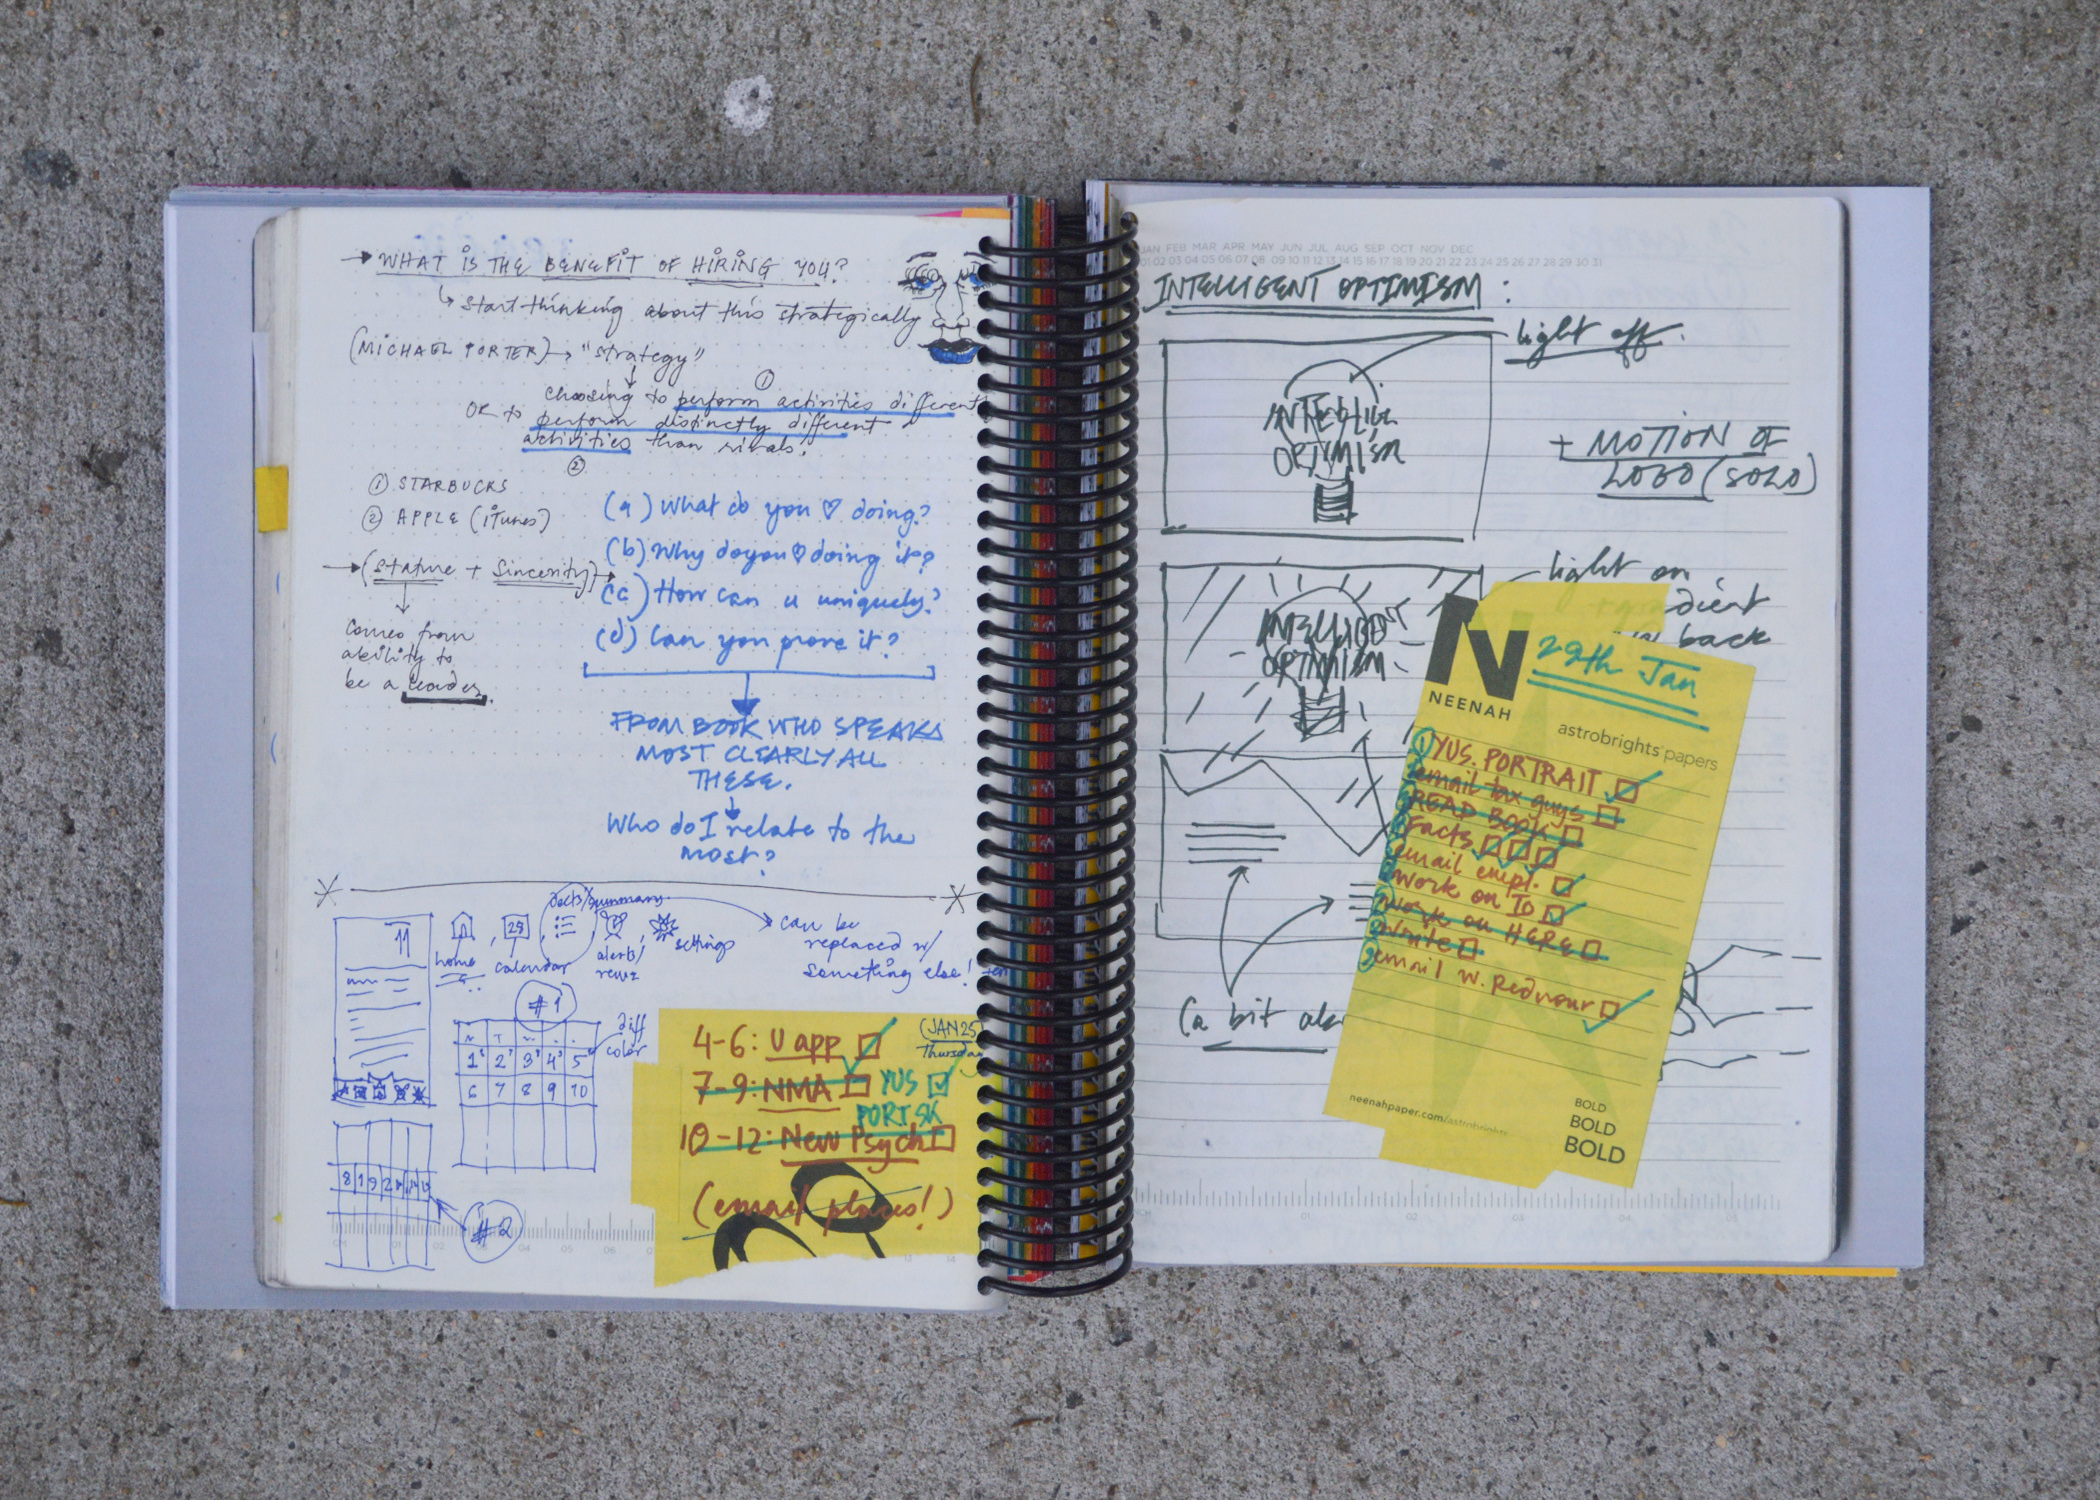 WHAT IS THE BENEFIT OF HIRING YOU?
Start thinking about this strategically
(MICHAEL PORTER) → "strategy"
①
choosing to perform activities different
OR to perform distinctly different
activities than rivals.
②
① STARBUCKS
② APPLE (iTunes)
(Stature + Sincerity)
comes from
ability to
be a leader.
(a) What do you ♡ doing?
(b) Why do you ♡ doing it?
(c) How can u uniquely?
(d) Can you prove it?
FROM BOOK WHO SPEAKS
MOST CLEARLY ALL
THESE.
Who do I relate to the
most?
11
home
29
calendar
alerts/
settings
can be
replaced w/
something else!
#1
diff
color
1 2 3 4 5
6 7 8 9 10
#2
(JAN 25)
Thursday
4-6: U app
7-9: NMA YUS
PORT SK
10-12: New Psych
(email places!)
JAN FEB MAR APR MAY JUN JUL AUG SEP OCT NOV DEC
01 02 03 04 05 06 07 08 09 10 11 12 13 14 15 16 17 18 19 20 21 22 23 24 25 26 27 28 29 30 31
INTELLIGENT OPTIMISM:
light off.
OPTIMISM
+ MOTION OF
LOGO (SOLO)
light on
back
INTELLIGENT
OPTIMISM
(a bit
N
NEENAH
29th Jan
astrobrights papers
① YUS. PORTRAIT
email tax guys
READ BOOK
Facts
email empl.
work on ID
work on HERE
write
email w. Rednour
neenahpaper.com/astrobrights
BOLD
BOLD
BOLD